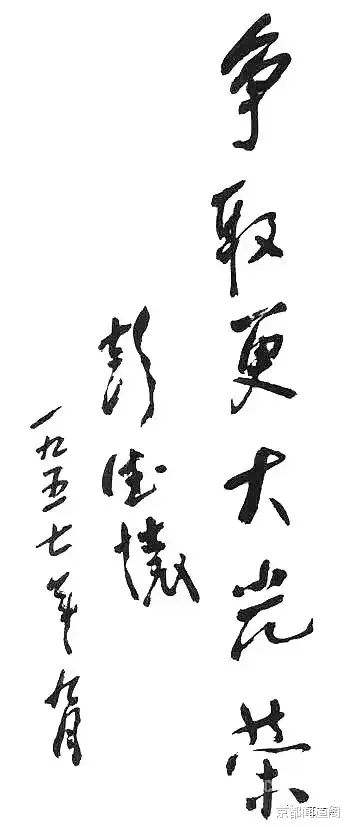 争取更大光荣
彭德怀
一九五七年九月
京都闻道阁